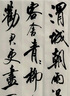 渭城朝雨
客舍青々柳
勸君更盡